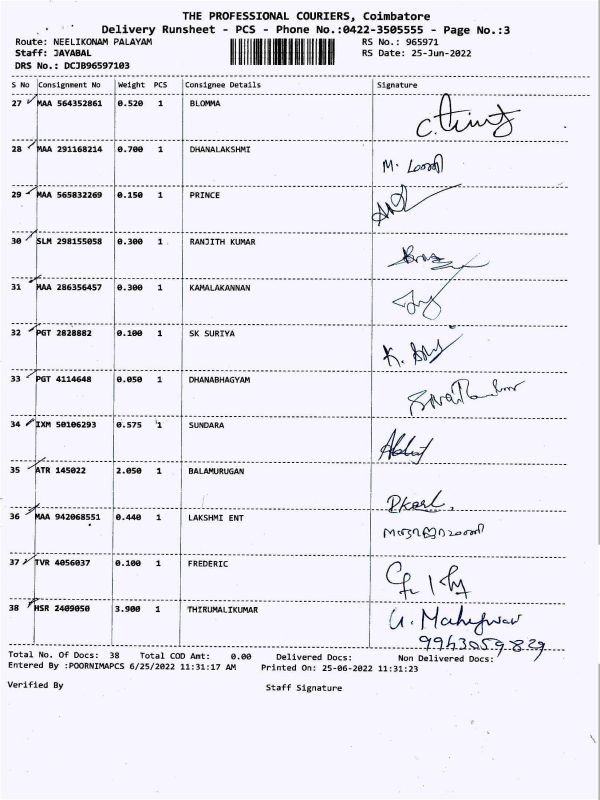 THE PROFESSIONAL COURIERS, Coimbatore
Delivery Runsheet - PCS - Phone No.:0422-3505555 - Page No.:3
Route: NEELIKONAM PALAYAM RS No.: 965971
Staff: JAYABAL RS Date: 25-Jun-2022
DRS No.: DCJB96597103
S No Consignment No Weight PCS Consignee Details Signature
27 MAA 564352861 0.520 1 BLOMMA
28 MAA 291168214 0.700 1 DHANALAKSHMI
29 MAA 565832269 0.150 1 PRINCE
30 SLM 298155058 0.300 1 RANJITH KUMAR
31 MAA 286356457 0.300 1 KAMALAKANNAN
32 PGT 2828882 0.100 1 SK SURIYA
33 PGT 4114648 0.050 1 DHANABHAGYAM
34 IXM 50106293 0.575 1 SUNDARA
35 ATR 145022 2.050 1 BALAMURUGAN
36 MAA 942068551 0.440 1 LAKSHMI ENT
37 TVR 4056037 0.100 1 FREDERIC
38 HSR 2409050 3.900 1 THIRUMALIKUMAR U. Maheswari
9943059829
Total No. Of Docs: 38 Total COD Amt: 0.00 Delivered Docs: Non Delivered Docs:
Entered By :POORNIMAPCS 6/25/2022 11:31:17 AM Printed On: 25-06-2022 11:31:23
Verified By Staff Signature